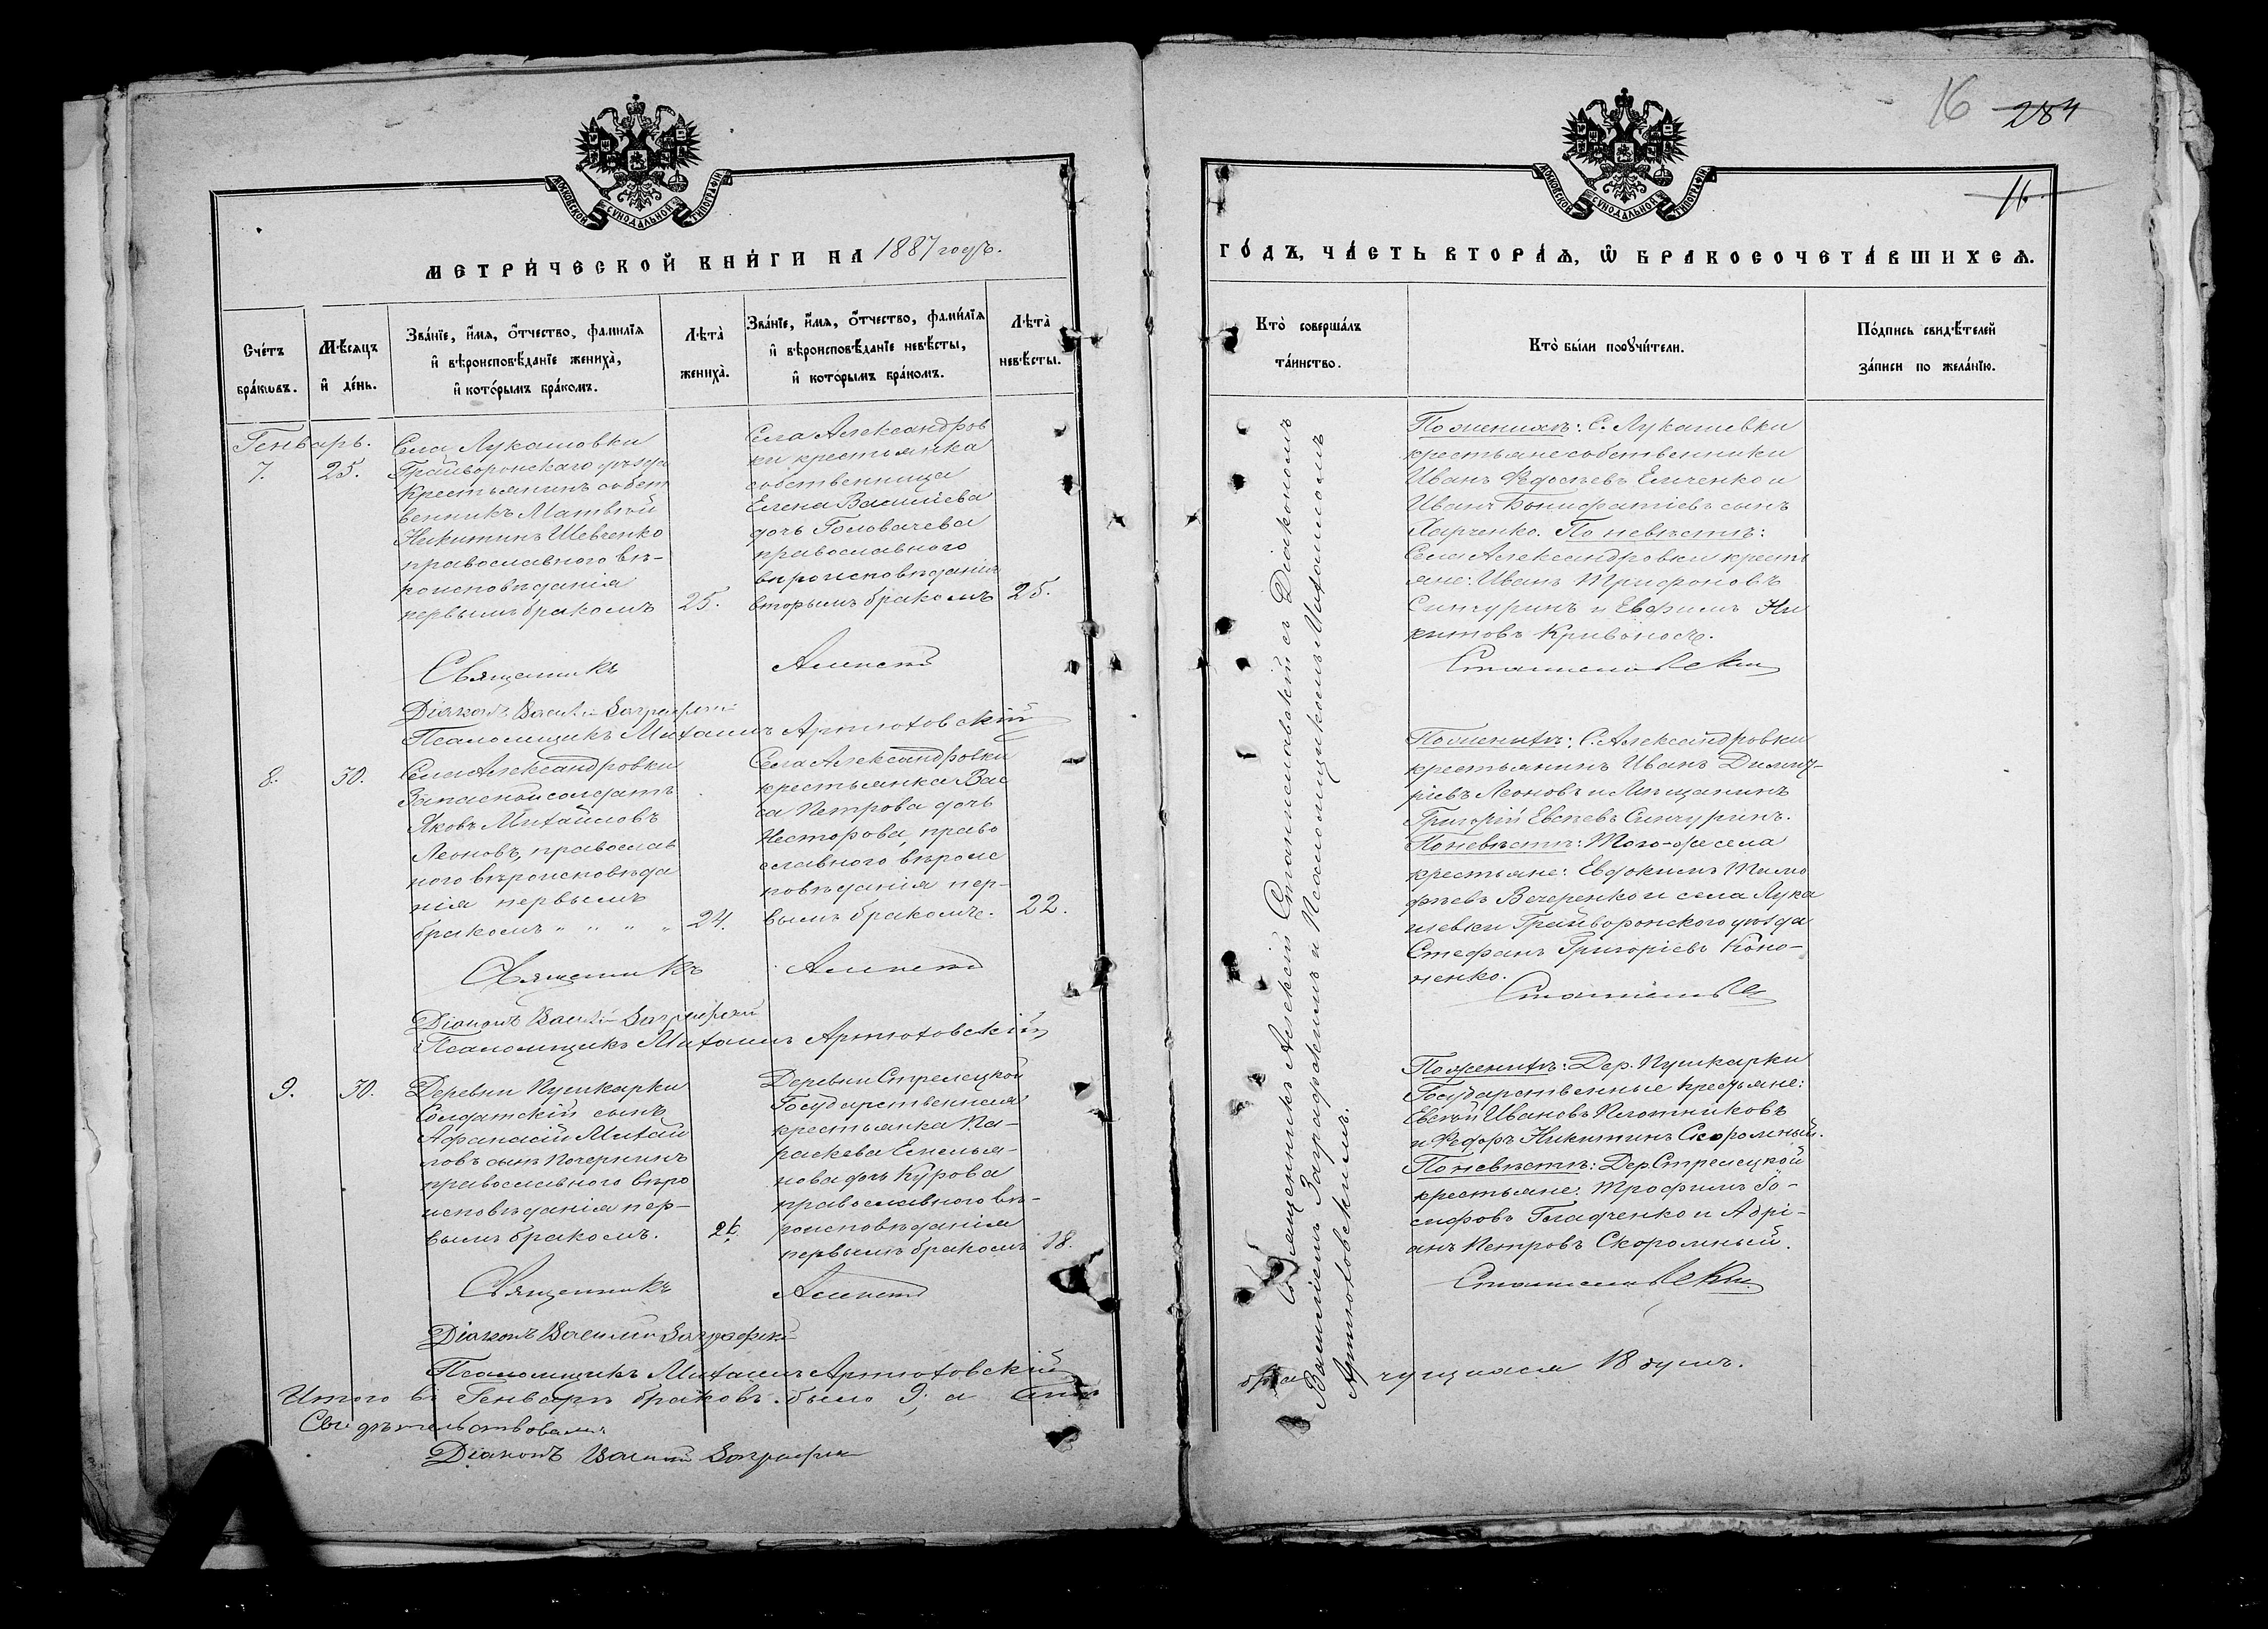 МОСКОВСКОЙ СѴНОДАЛЬНОЙ ТИПОГРАФІИ
МЕТРИ́ЧЕСКОЙ КНИ́ГИ НА 1887 годъ.
Сче́тъ бра́кѡвъ.
Мѣ́сяцъ и҆ де́нь.
Зва́нїе, и҆́мѧ, ѻ҆́тчество, фамилїѧ и҆ вѣроисповѣ́данїе жениха̀, и҆ кото́рымъ бра́комъ.
Лѣта̀ жениха̀.
Зва́нїе, и҆́мѧ, ѻ҆́тчество, фами́лїѧ и҆ вѣроисповѣ́данїе невѣ́сты, и҆ кото́рымъ бра́комъ.
Лѣта̀ невѣ́сты.
Генварь.
7.
25.
Села Лукашовки
Грайворонскаго уѣзда
Крестьянинъ собст
венникъ Матвѣй
Никитинъ Шевченко
православного вѣ-
роисповѣданія
первымъ бракомъ
25.
Села Александров
ки крестьянка
собственница
Елена Васильева
дочь Головачева
православного
вѣроисповѣданія
вторымъ бракомъ
25.
Священникъ Алексѣй
Діаконъ Василій Заграфскій
Псаломщикъ Михаилъ Артюховскій
8.
30.
Села Александровки
Запасной солдатъ
Яковъ Михайловъ
Леоновъ, православ
ного вѣроисповѣда
нія первымъ
бракомъ " " " "
24.
Села Александровки
крестьянка Вас
са Петрова дочь
Несторова, право
славного вѣроис
повѣданія пер-
вымъ бракомъ.
22.
Священникъ Алексѣй
Діаконъ Василій Заграфскій
Псаломщикъ Михаилъ Артюховскій
9.
30.
Деревни Пушкарки
Солдатскій сынъ
Афанасій Михай
ловъ сынъ Почернинъ
православного вѣро
исповѣданія пер-
вымъ бракомъ.
Деревни Стрелецкой
Государственная
крестьянка Па-
раскева Емелья-
нова дочь Курова
православного вѣ-
роисповѣданія
первымъ бракомъ
18.
Священникъ Алексѣй
Діаконъ Василій Заграфскій
Псаломщикъ Михаилъ Артюховскій
Итого въ Генварѣ браковъ было 9, а
Свидѣтельствовали:
Діаконъ Василій Заграфскій
16 284
11.
МОСКОВСКОЙ СѴНОДАЛЬНОЙ ТИПОГРАФІИ
ГО́ДЪ, ЧА́СТЬ ВТОРА́Ѧ, Ѽ БРАКОСОЧЕТА́ВШИХСѦ.
Кто̀ соверша́лъ та́инство.
Кто̀ бы́ли порꙋчи́тели.
По́дпись свидѣ́телей за́писи по жела́нїю.
Священникъ Алексѣй Станиславскій съ Діакономъ
Василіемъ Заграфскимъ и Псаломщикомъ Михаиломъ
Артюховскимъ.
По женихѣ: С. Лукашевки
крестьяне собственники
Иванъ Федосѣевъ Емченко и
Иванъ Бонифатіевъ сынъ
Харченко. По невѣстѣ:
Села Александровки кресть
яне: Иванъ Трифоновъ
Синчуринъ и Евфимъ Ни
китовъ Кривоносъ.
Станиславскій
По женихѣ: С. Александровки
крестьянинъ Иванъ Димит-
ріевъ Леоновъ и Мѣщанинъ
Григорій Евсѣевъ Синчуринъ.
По невѣстѣ: Того-же села
крестьяне: Евдокимъ Тимо
фѣевъ Вечеренко и села Лука
шевки Грайворонского уѣзда
Стефанъ Григоріевъ Коно-
ненко.
Станиславскій
По женихѣ: Дер. Пушкарки
Государственные крестьяне:
Евсѣй Ивановъ Плотниковъ
и Федоръ Никитинъ Скоромный.
По невѣстѣ: Дер. Стрелецкой
крестьяне: Трофимъ Іо-
сифовъ Гладченко и Адрі-
анъ Петровъ Скоромный.
Станиславскій
18 душъ.